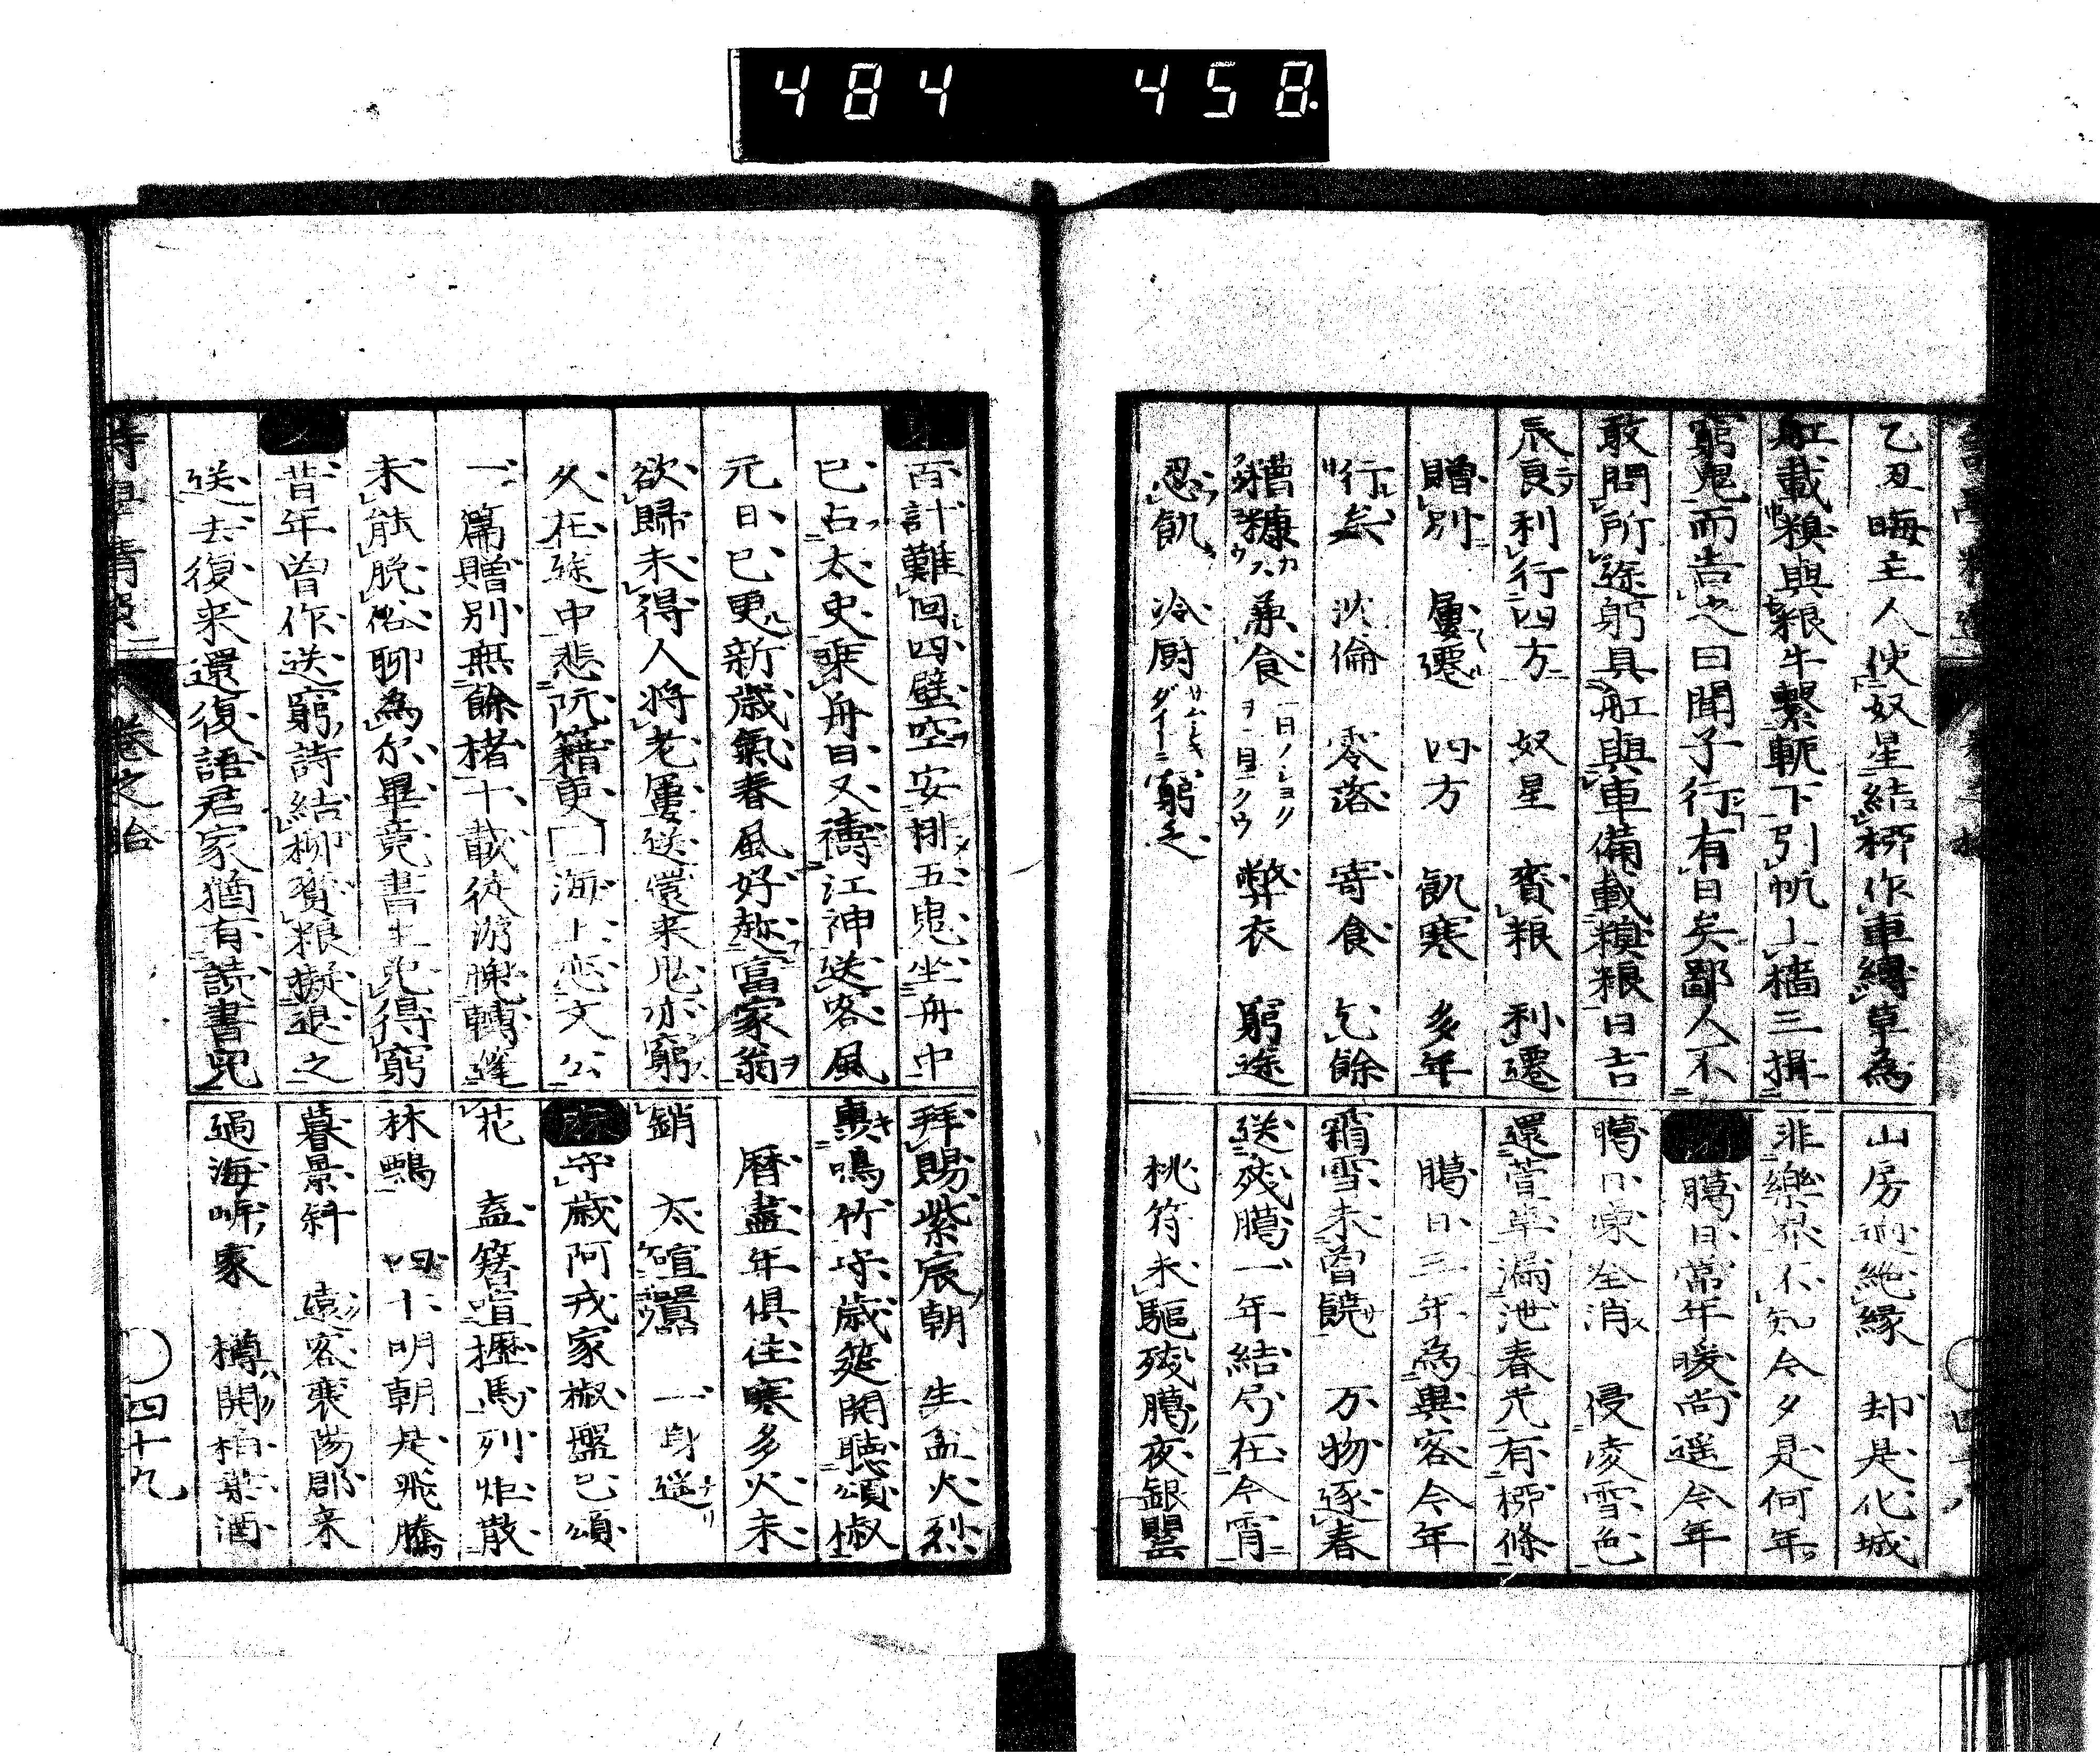 484 458.
乙丑晦主人使奴星結柳作車縛草為
舡載糗與粮牛繋軛下引帆上檣三揖
窮鬼而告之曰聞子行有日矣鄙人不
敢問所途躬具舡與車備載糗粮日吉
辰良利行四方 奴星 賚粮 利遷
贈別 屢遷 四方 飢寒 多年
行矣 沈倫 零落 寄食 乞餘
糟糠 兼食 弊衣 窮途
忍飢 冷厨 窮乏
山房逈絶縁 却是化城
非樂界不知今夕是何年
臘日常年暖尚遥今年
臘日凍全消 侵凌雪色
還萱草漏泄春光有柳條
臘日三年為異客今年
霜雪未曽饒 万物逐春
送殘臘一年結局在今宵
桃符未駆殘臘夜銀罌
百計難回四壁空安排五鬼坐舟中
已占太史乗舟日又禱江神送客風
元日已更新歳氣春風好趂富家翁
欲歸未得人将老屢送還来鬼亦窮
久在途中悲阮籍更 海上恋文公
一篇贈別無餘楮十載従游臕轉蓬
未能脱俗聊為尓畢竟書生只得窮
昔年曽作送窮詩結柳賚粮擬退之
送去復来還復語君家猶有読書児
拜賜紫宸朝 生盆火烈
轟鳴竹守歳筵開聴頌椒
暦盡年倶住寒多火未
銷 太喧囂 一身遥
守歳阿戎家椒盤已頌
花 盍簪喧櫪馬列炬散
林鴉 四十明朝是飛騰
暮景斜 遠客襄陽郡来
過海岸家 樽開柏葉酒
巻之
四十九